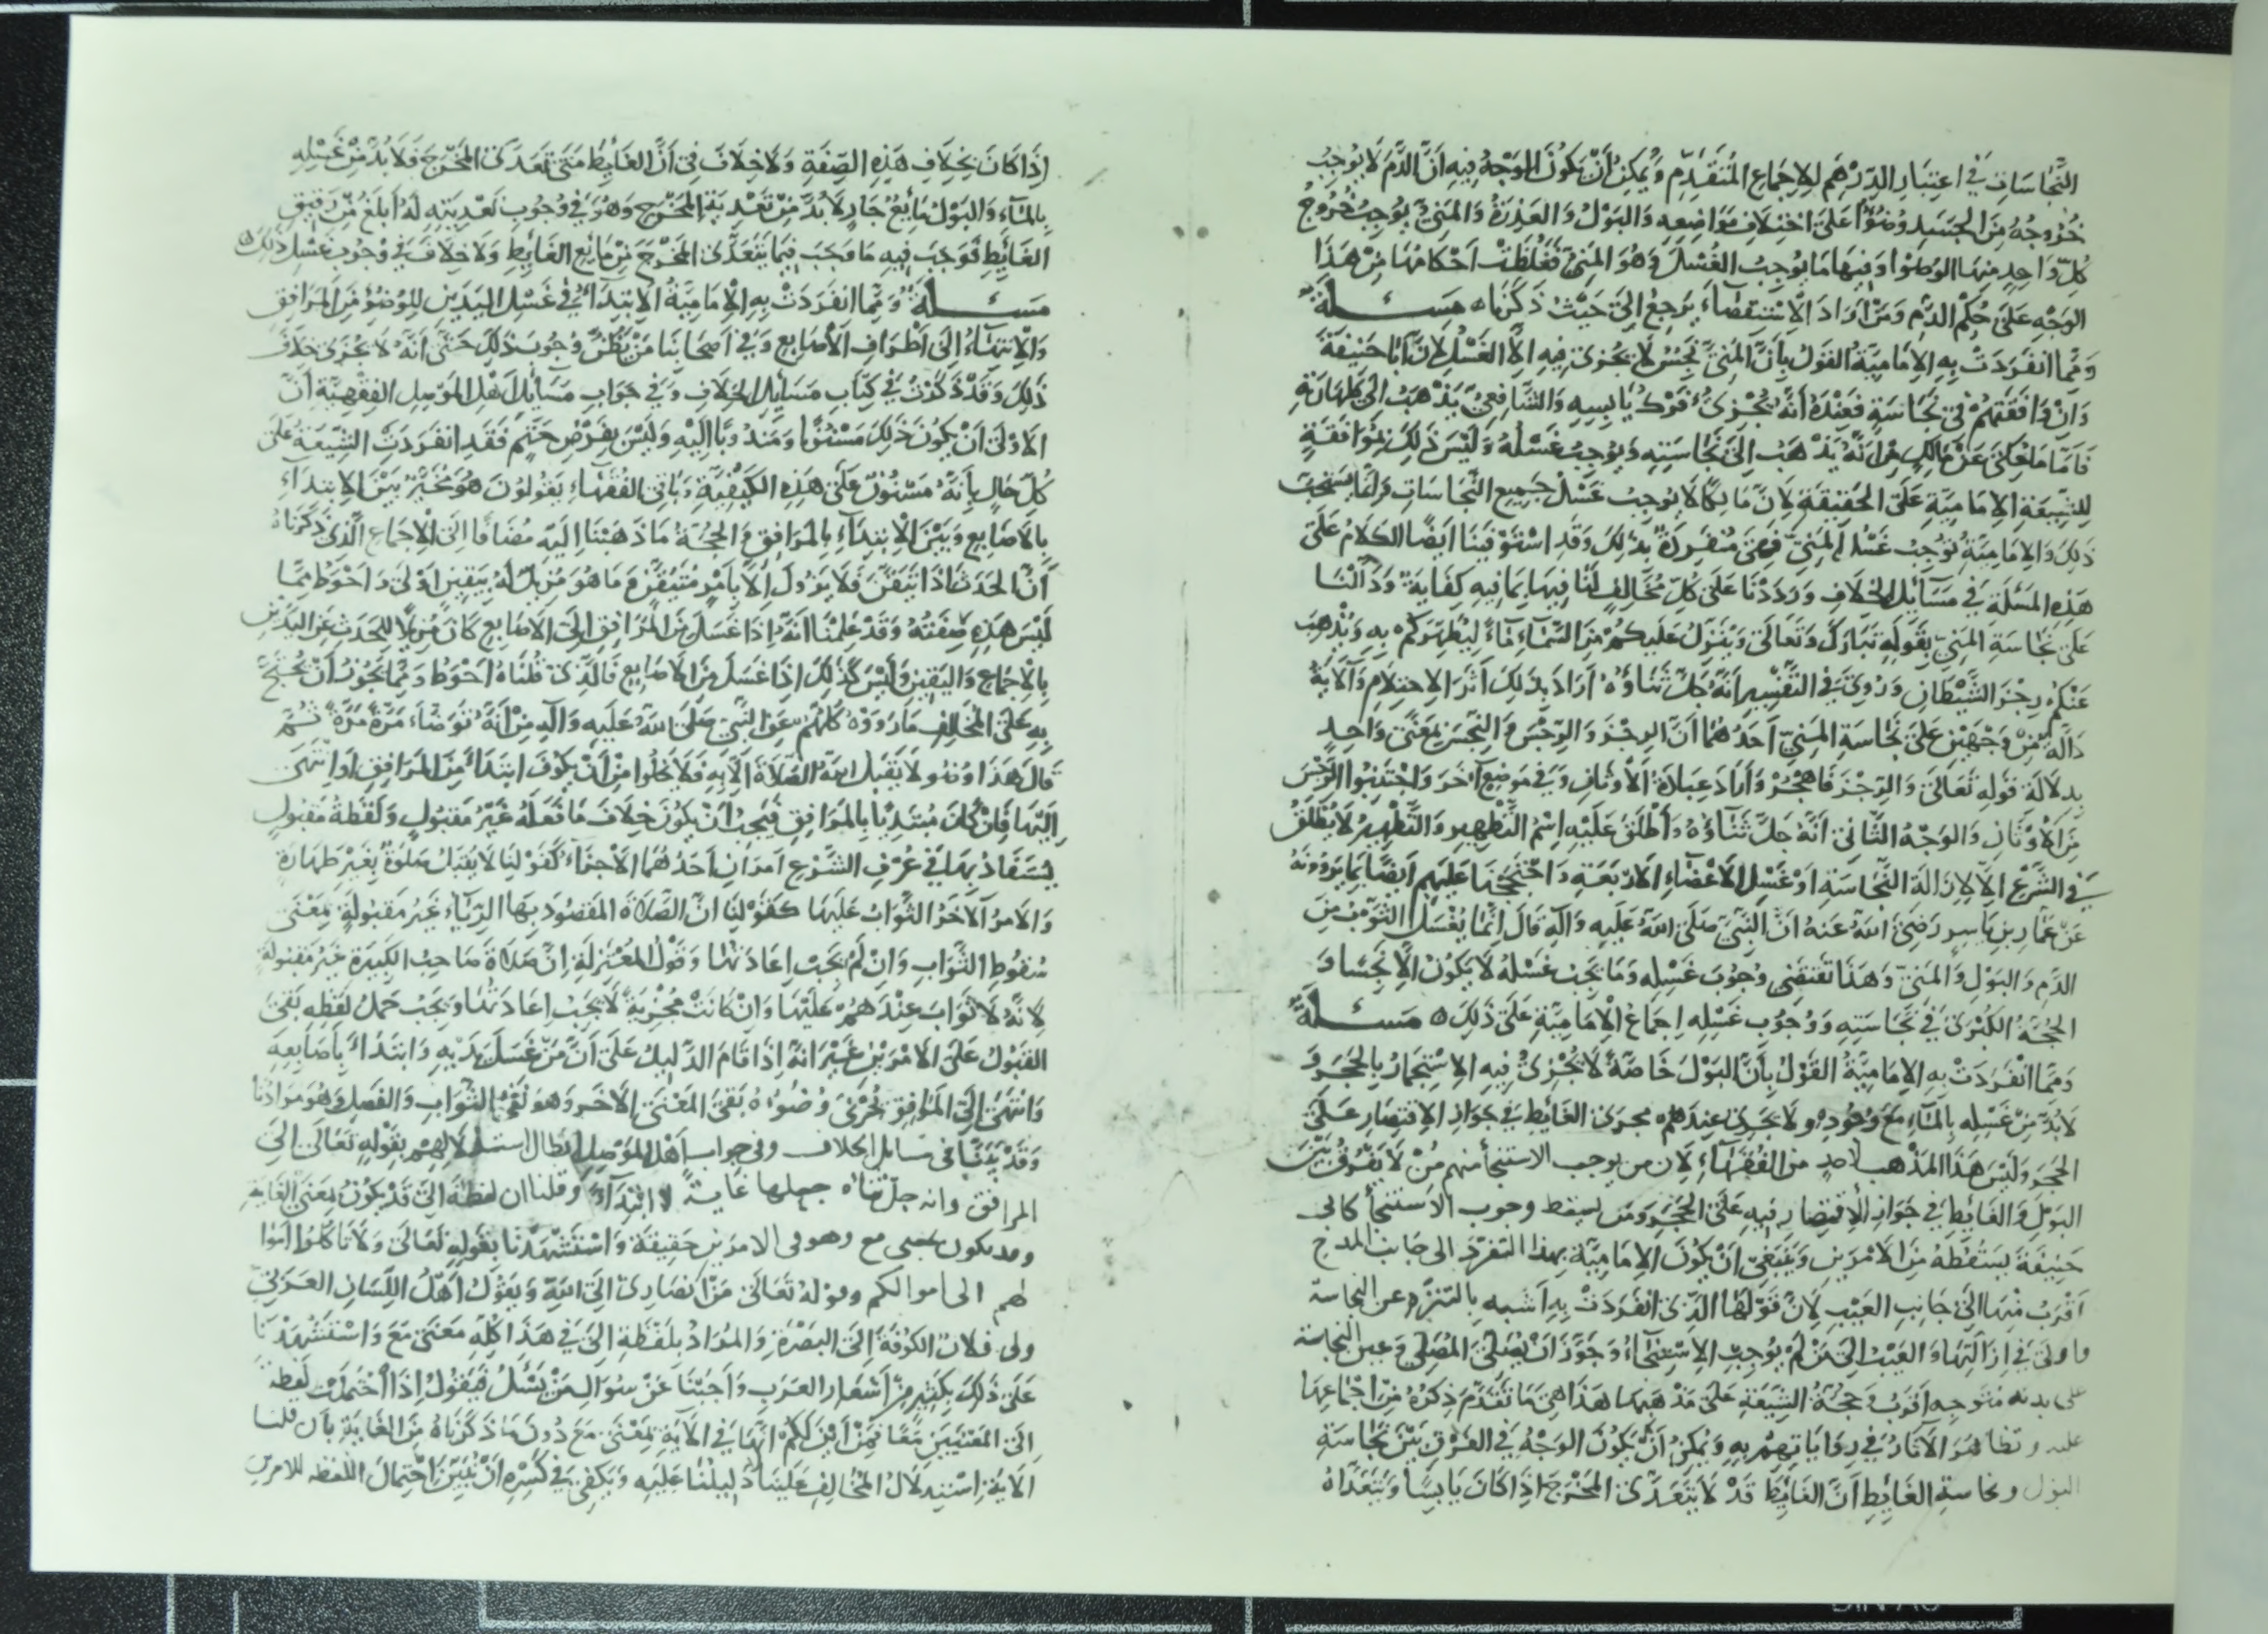 النجاسات في اعتبار الدرهم للاجماع المتقدم ويمكن أن يكون الوجه فيه أن الدم لا يوجب
خروجه من الجسد وضوءا على اختلاف مواضعه والبول والعذرة والمني يوجب خروج
كل واحد منها الوضوء وفيها ما يوجب الغسل وهو المني فغلظت احكامها من هذا
الوجه على حكم الدم ومن اراد الاستقصاء يرجع الى حيث ذكرناه مسئلة
ومما انفردت به الامامية القول بأن المني نجس لا يجزى فيه الا الغسل لان ابا حنيفة
وان وافقهم في نجاسته فعنده أنه يجزئ فرك يابسه والشافعي يذهب الى طهارته
فاما ما يحكى عن مالك من انه يذهب الى نجاسته ويوجب غسله وليس ذلك بموافقة
للشيعة الامامية على الحقيقة لان مالكا لا يوجب غسل جميع النجاسات وانما يستحب
ذلك والامامية توجب غسل المني فهي منفردة بذلك وقد استوفينا ايضا الكلام على
هذه المسئلة في مسائل الخلاف ورددنا على كل مخالف لنا فيها بما فيه كفاية ودللنا
على نجاسة المني بقوله تبارك وتعالى وينزل عليكم من السماء ماء ليطهركم به ويذهب
عنكم رجز الشيطان وروي في التفسير انه جل ثناؤه اراد بذلك اثر الاحتلام والآية
دالة من وجهين على نجاسة المني احدهما ان الرجز والرجس والنجس بمعنى واحد
بدلالة قوله تعالى والرجز فاهجر واراد عبادة الأوثان وفي موضع آخر واجتنبوا الرجس
من الأوثان والوجه الثاني انه جل ثناؤه واطلق عليه اسم التطهير والتطهير لا يطلق
في الشرع الا لازالة النجاسة او غسل الاعضاء الاربعة واحتججنا عليهم ايضا بما يروونه
عن عمار بن ياسر رضي الله عنه ان النبي صلى الله عليه وآله قال انما يغسل الثوب من
الدم والبول والمني وهذا تقتضي وجوب غسله وما يجب غسله لا يكون الا نجسا و
الحجة الكبرى في نجاسته ووجوب غسله اجماع الامامية على ذلك ه مسئلة
ومما انفردت به الامامية القول بأن البول خاصة لا يجزئ فيه الاستجمار بالحجر و
لابد من غسله بالماء مع وجوده ولا يجرى عندهم مجرى الغائط في جواز الاقتصار على
الحجر وليس هذا المذهب لاحد من الفقهاء لان من يوجب الاستنجا منهم من لا يفرق بين
البول والغائط في جواز الاقتصار فيه على الحجر ومن يسقط وجوب الاستنجا كابى
حنيفة يسقطه من الامرين وينبغي ان يكون الامامية بهذا التفرد الى جانب المدح
اقرب منها الى جانب العيب لان قولها الذى انفردت به اشبه بالتنزه عن النجاسة
واولى في ازالتها والعيب الى من لم يوجب الاستنجاء وجوز ان يصلى المصلي وعين النجاسة
على بدنه متوجه اقرب وحجة الشيعة على مذهبها هذا هي ما تقدم ذكره من اجماعها
عليه وتظاهر الآثار في رواياتهم به ويمكن أن يكون الوجه في الفرق بين نجاسة
البول ونجاسة الغائط ان الغائط قد لا يتعدى المخرج اذا كان يابسا ويتعداه
اذا كان بخلاف هذه الصفة ولا خلاف في ان الغائط متى تعدى المخرج فلابد من غسله
بالماء والبول مايع جار لابد من تعديه المخرج وهو في وجوب تعديته له ابلغ من رقيق
الغائط فوجب فيه ما وجب فيما يتعدى المخرج من مايع الغائط ولا خلاف في وجوب غسل ذلك ه
مسئلة ومما انفردت به الامامية الابتداء في غسل اليدين للوضوء من المرافق
والانتهاء الى اطراف الأصابع وفي اصحابنا من يظن وجوب ذلك حتى انه لا يجزى خلاف
ذلك وقد ذكرت في كتاب مسائل الخلاف وفي جواب مسائل اهل الموصل الفقهية أن
الاولى أن يكون ذلك مسنونا ومندوبا اليه وليس بفرض حتم فقد انفردت الشيعة على
كل حال بانه مسنون على هذه الكيفية وباقي الفقهاء يقولون هو مخير بين الابتداء
بالاصابع وبين الابتداء بالمرافق والحجة ما ذهبنا اليه مضافا الى الاجماع الذي ذكرناه
أن الحدث اذا تيقن فلا يزول الا بامر متيقن وما هو مزيل له بيقين اولى واحوط مما
ليس هذه صفته وقد علمنا انه اذا غسل من المرافق الى الاصابع كان مزيلا للحدث عن اليدين
بالاجماع واليقين وليس كذلك اذا غسل من الاصابع فالذى قلناه احوط ومما يجوز أن يحتج
به على المخالف ما رووه كلهم عن النبي صلى الله عليه وآله من انه توضاء مرة مرة ثم
قال هذا وضوء لا يقبل الله الصلاة الا به فلا يخلوا من أن يكون ابتدأ من المرافق او انتهى
اليها فان كان مبتديا بالمرافق فيجب أن يكون خلاف ما فعله غير مقبول ولفظة مقبول
يستفاد بها في عرف الشرع امران احدهما الأجزاء كقولنا لا يقبل صلوة بغير طهارة
والامر الآخر الثواب عليها كقولنا ان الصلاة المقصود بها الرياء غير مقبولة بمعنى
سقوط الثواب وان لم يجب اعادتها وقول المعتزلة ان صلاة صاحب الكبيرة غير مقبولة
لانه لا ثواب عندهم عليها وان كانت مجزية لا يجب اعادتها ويجب حمل لفظه نفى
القبول على الامرين غير انه اذا قام الدليل على ان من غسل يديه وابتداء باصابعه
وانتهى الى المرافق يجزى وضوءه نفى المعنى الآخر وهو نفي الثواب والفضل وهو مرادنا
وقد بينا فى مسائل الخلاف وفى جواب اهل الموصل ابطال استدلالهم بقوله تعالى الى
المرافق وانه جل ثناه جعلها غاية لا ابتداء وقلنا ان لفظة الى قد يكون بمعنى الغاية
وقد يكون بمعنى مع وهو فى الامرين حقيقة واستشهدنا بقوله تعالى ولا تاكلوا اموا
لهم الى اموالكم وقوله تعالى من انصارى الى الله ويقول اهل اللسان العربي
ولى فلان الكوفة الى البصرة والمراد بلفظة الى في هذا كله معنى مع واستشهدنا
على ذلك بكثير من اشعار العرب واجبنا عن سؤال من يسئل فيقول اذا احتملت لفظة
الى المعنيين معا فمن اين لكم انها في الآية بمعنى مع دون ما ذكرناه من الغاية بأن قلنا
الآية استدلال المخالف علينا دليلنا عليه ويكفى في كسره ان نبين احتمال اللفظه للامرين